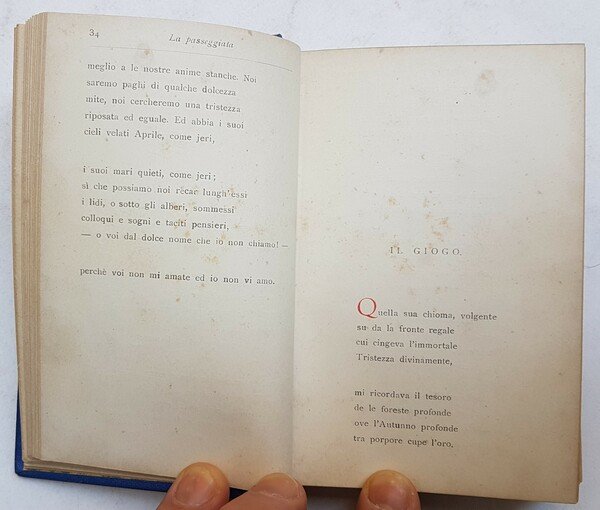 34
La passeggiata
meglio a le nostre anime stanche. Noi
saremo paghi di qualche dolcezza
mite, noi cercheremo una tristezza
riposata ed eguale. Ed abbia i suoi
cieli velati Aprile, come jeri,
i suoi mari quieti, come jeri;
sì che possiamo noi recar lungh'essi
i lidi, o sotto gli alberi, sommessi
colloqui e sogni e taciti pensieri,
— o voi dal dolce nome che io non chiamo! —
perchè voi non mi amate ed io non vi amo.
IL GIOGO.
Quella sua chioma, volgente
su da la fronte regale
cui cingeva l'immortale
Tristezza divinamente,
mi ricordava il tesoro
de le foreste profonde
ove l'Autunno profonde
tra porpore cupe l'oro.